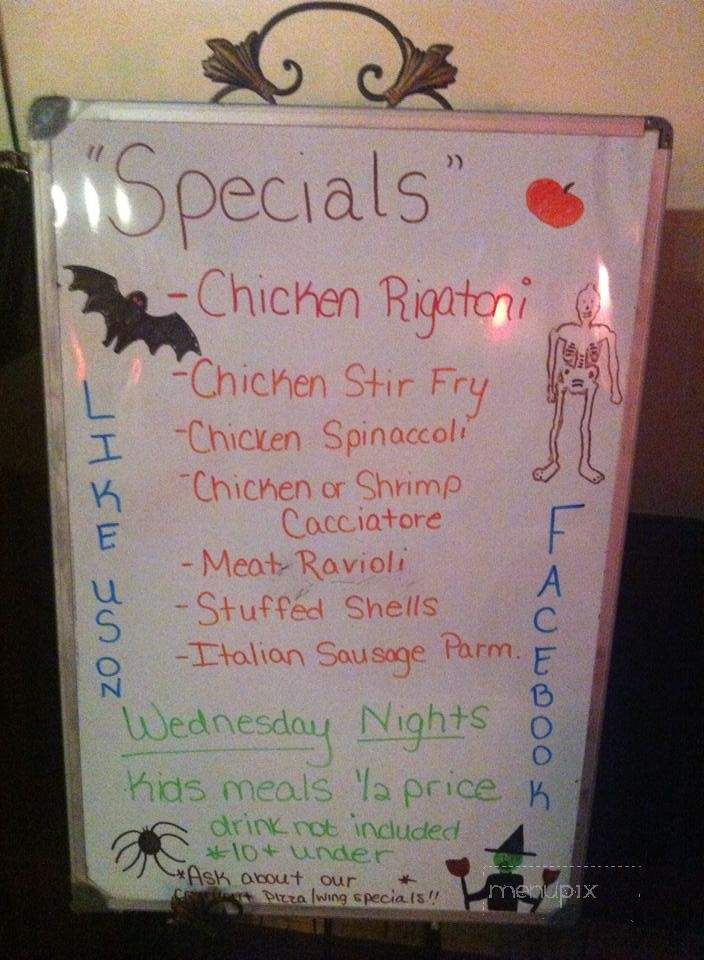 "Specials"
- Chicken Rigatoni
- Chicken Stir Fry
- Chicken Spinaccoli
- Chicken or Shrimp
Cacciatore
- Meat Ravioli
- Stuffed Shells
- Italian Sausage Parm.
LIKE US ON
FACEBOOK
Wednesday Nights
Kids meals 1/2 price
drink not included
*10 + under
*Ask about our *
pizza/wing specials!!
menupix